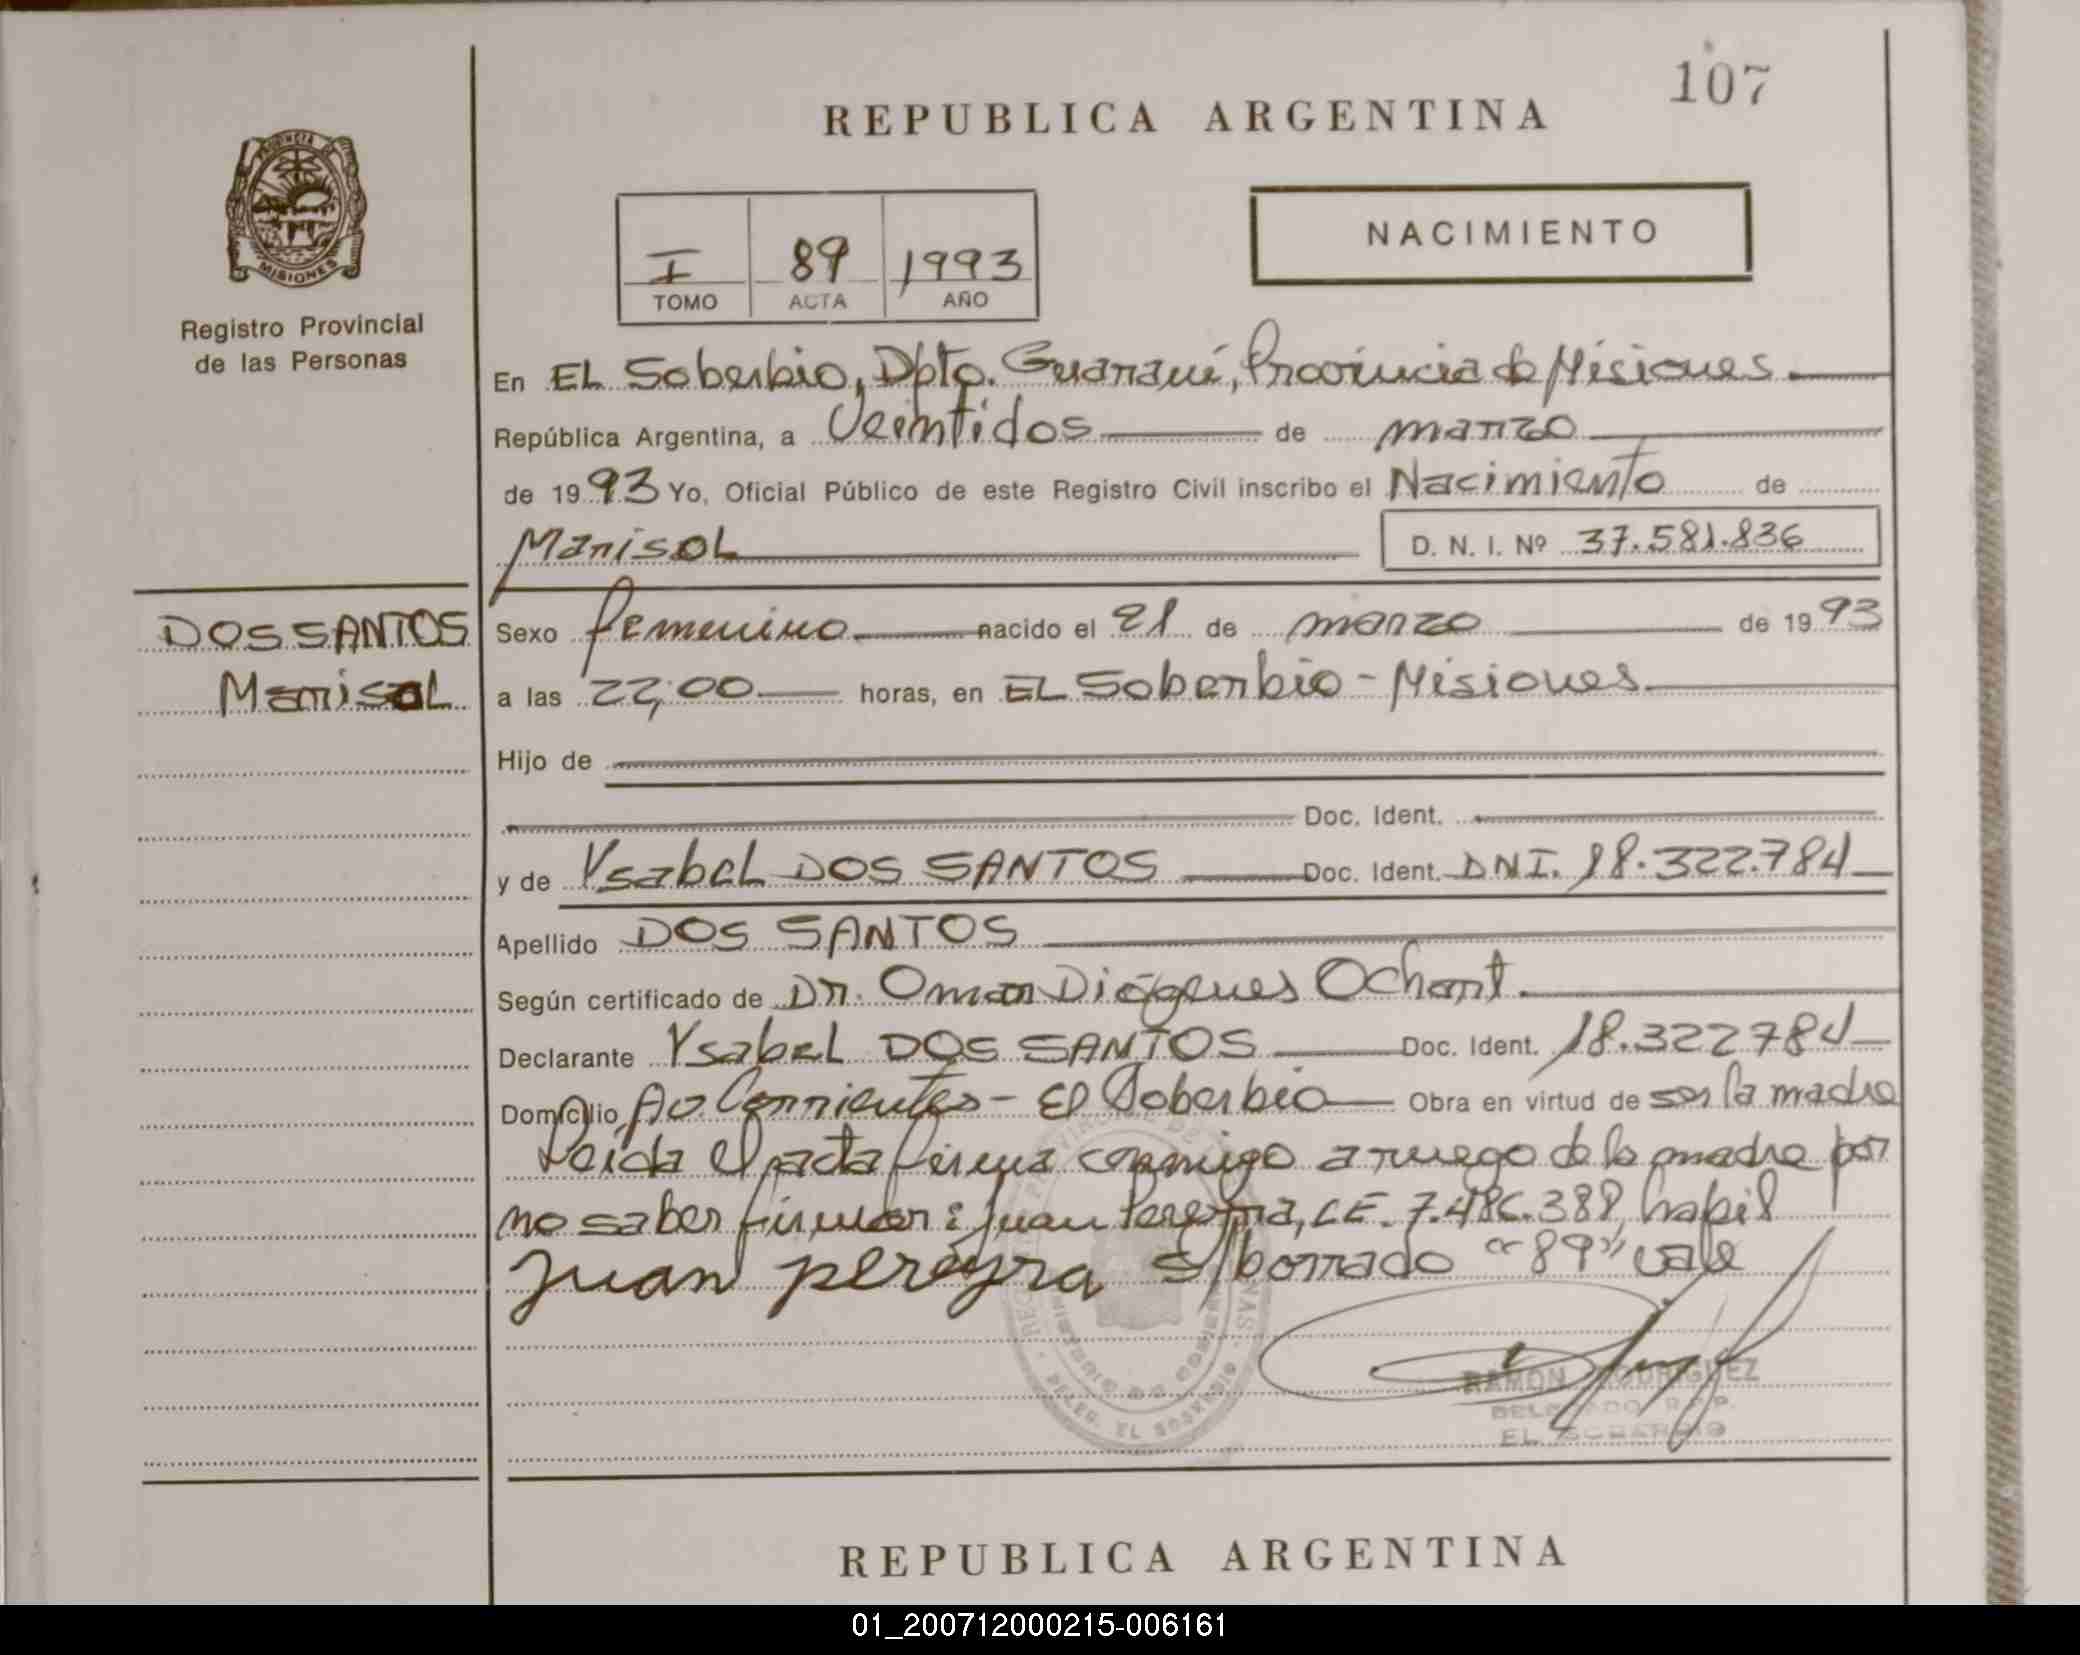 107
REPUBLICA ARGENTINA
PROVINCIA DE
MISIONES
Registro Provincial
de las Personas
NACIMIENTO
I 89 1993
TOMO ACTA AÑO
En EL Soberbio, Dpto. Guaraní, Provincia de Misiones
República Argentina, a Veintidos de marzo
de 1993 Yo, Oficial Público de este Registro Civil inscribo el Nacimiento de
Marisol D. N. I. Nº 37.581.836
DOS SANTOS
Marisol
Sexo femenino nacido el 21 de marzo de 1993
a las 22,00 horas, en EL Soberbio - Misiones
Hijo de
Doc. Ident.
y de Ysabel DOS SANTOS Doc. Ident. DNI. 18.322.784
Apellido DOS SANTOS
Según certificado de Dr. Omar Diógenes Ochart.
Declarante Ysabel DOS SANTOS Doc. Ident. 18.322784
Domicilio Ao. Corrientes - El Soberbio Obra en virtud de ser la madre
Leida el acta firma conmigo a ruego de la madre por
no saber firmar: Juan Pereyra, LE. 7.486.388, habil
juan pereyra S/borrado "89" vale
RAMON RODRIGUEZ
DELEGADO R.P.P.
EL SOBERBIO
DELEG. EL SOBERBIO
REPUBLICA ARGENTINA
01_200712000215-006161